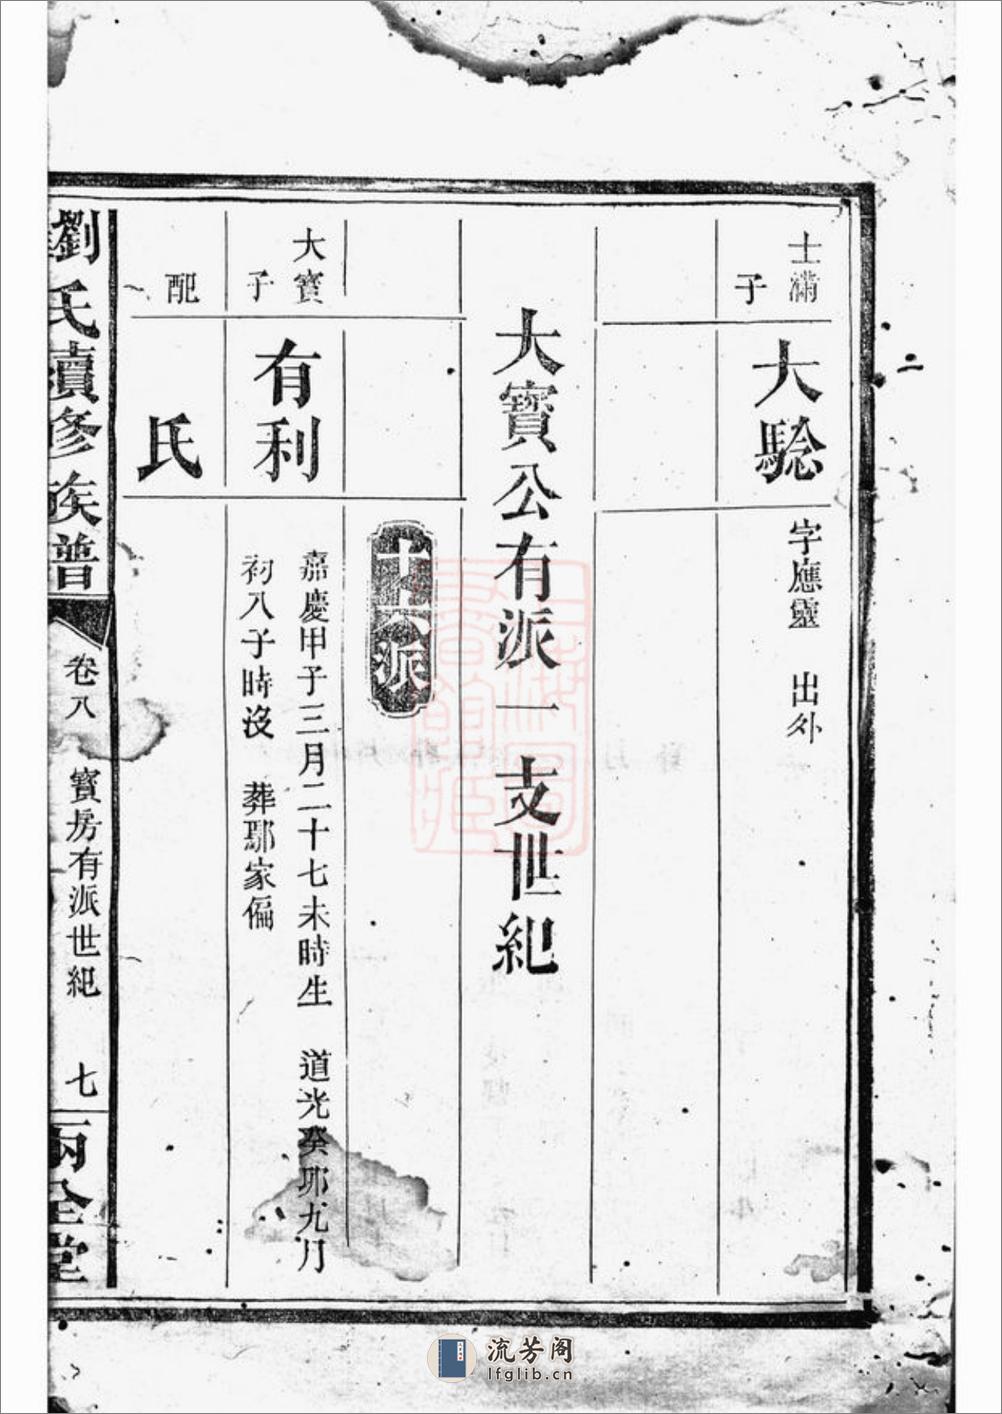 士滿
子
大騐
字應靈 出外
大寶公有派一支世紀
十六派
大寶
子
有利
嘉慶甲子三月二十七未時生 道光癸卯九月
初八子時沒 葬鄢家偏
配
氏
劉氏續修族普
卷八 寶房有派世紀 七
兩全堂
二
流芳阁
lfglib.cn